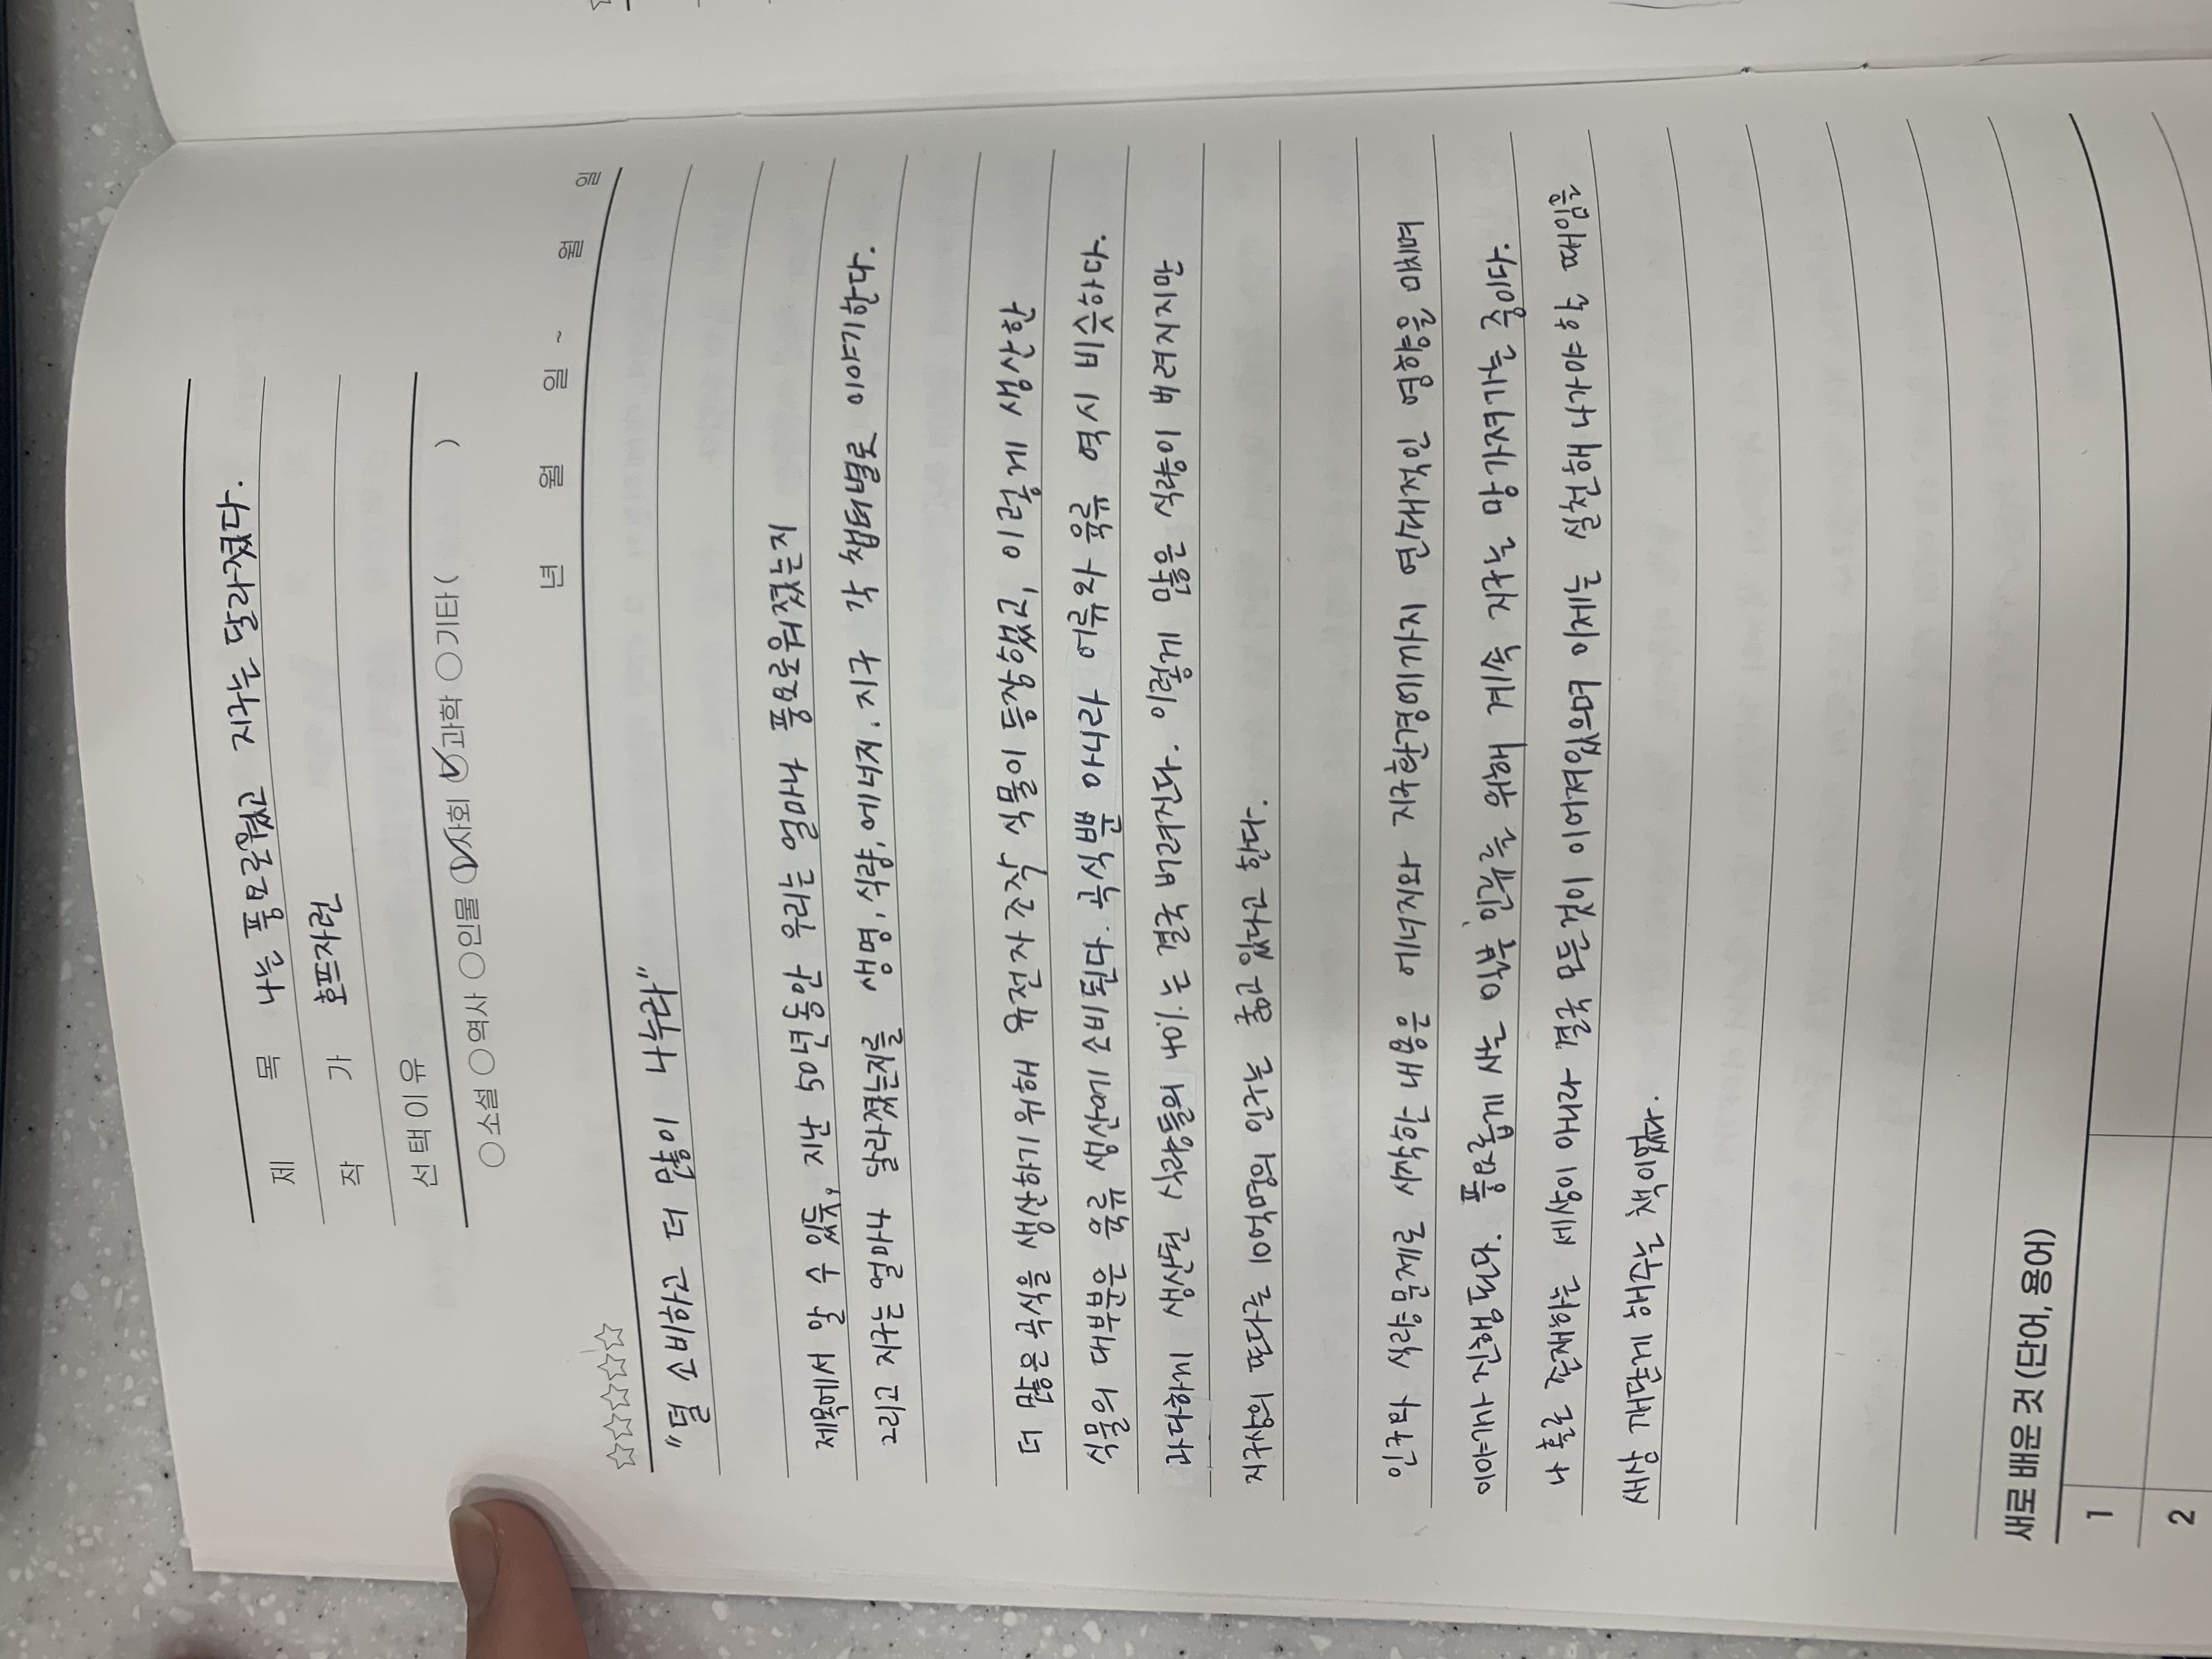 제 목 나는 풍요로웠고 지구는 달라졌다.
작 가 호프자런
선택이유
○소설 ○역사 ○인물 ○사회 ○과학 ○기타( )
년 월 일 ~ 월 일
☆☆☆☆☆
"덜 소비하고 더 많이 나누라"
제목에서 알 수 있듯, 지난 50년동안 우리는 얼마나 풍요로워졌는지
그리고 지구는 얼마나 달라졌는지를 생명, 식량, 에너지, 지구 각 챕터별로 이야기한다.
더 많은 곡식을 생산하기 위해 유전자조작 식물이 등장했고, 이렇게 생산한
식물의 대부분은 육류 생산에 소비된다. 곡식뿐 아니라 어류와 육류 역시 비슷하다.
과다하게 생산된 식량들의 40%는 결국 버려진다. 이렇게 많은 식량이 버려지지만
지구상의 또다른 10억명의 인구는 굶고 있다고 한다.
인구와 식량문제로 시작한 내용은 에너지와 지구환경에까지 연쇄적인 영향을 미치며
이야기가 진행된다. 풍요롭게 사는 일부 인류를 위해 계속 지구는 망가져가는 중이다.
나 홀로 존재하는 세상이 아니라 결국 모든것이 이어져있으며 이제는 실천해 나가야 할 때임을
새삼 깨닫게 해주는 책이었다.
새로 배운 것 (단어, 용어)
1
2